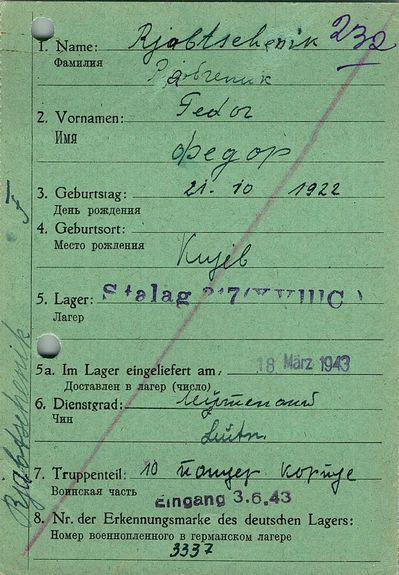 232
1. Name: Rjabtschenik
Фамилия
2. Vornamen: Fedor
Имя
Федор
3. Geburtstag: 21. 10 1922
День рождения
4. Geburtsort:
Место рождения
Kijev
5. Lager: Stalag 317(XVIIIC)
Лагер
5a. Im Lager eingeliefert am,
18 März 1943
Доставлен в лагер (число)
6. Dienstgrad:
Чин
Leutn.
7. Truppenteil: 10
Воинская часть
Eingang 3.6.43
8. Nr. der Erkennungsmarke des deutschen Lagers:
Номер военнопленного в германском лагере
3337
Rjabtschenik F